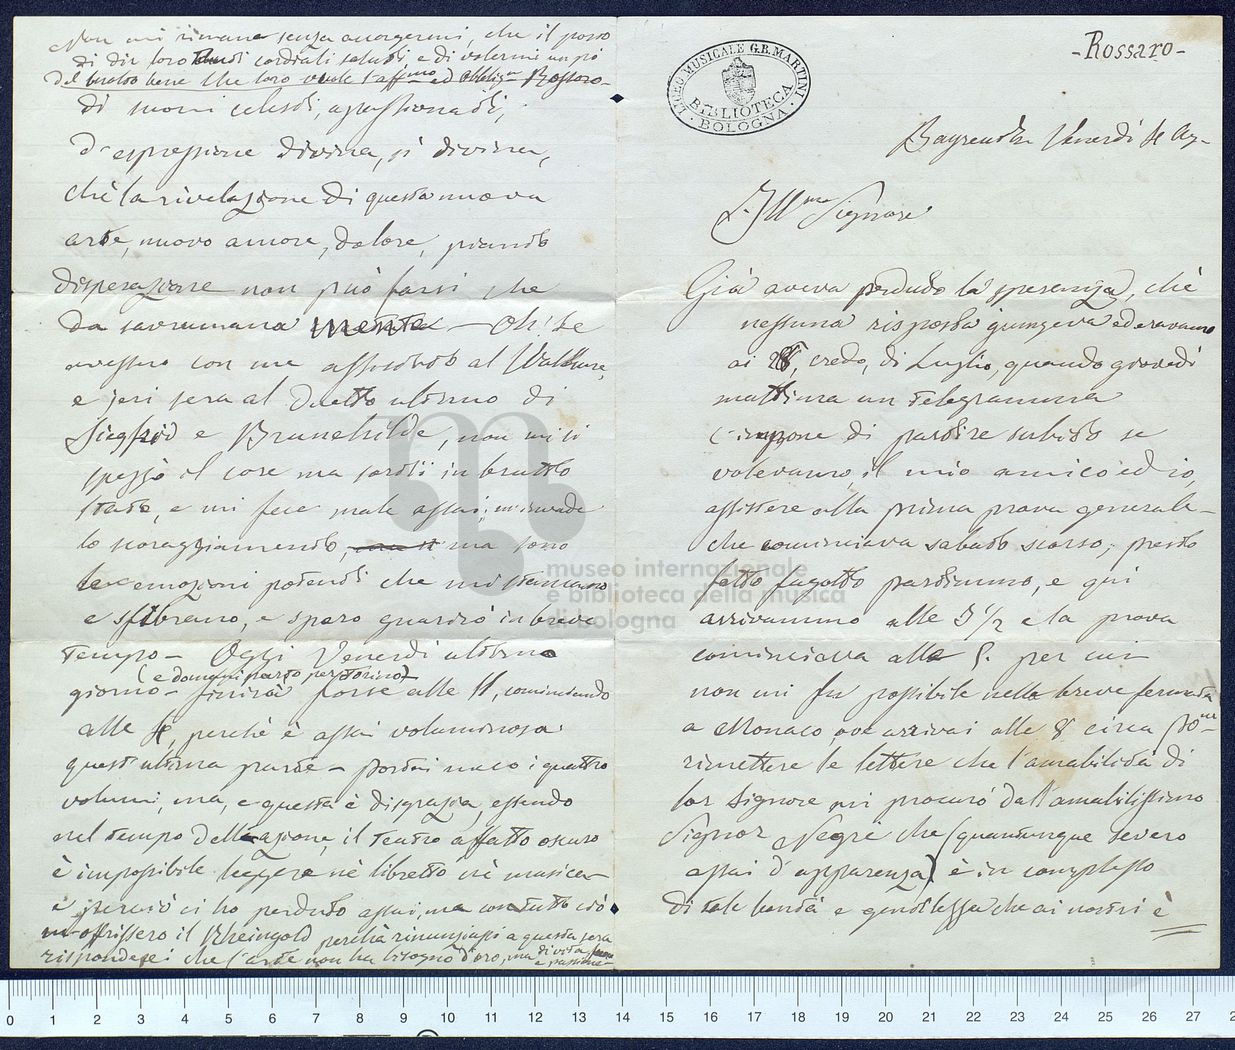 -Rossaro-
LICEO MUSICALE G.B. MARTINI
BIBLIOTECA
BOLOGNA
Bayreuth Venerdì 4 Ag-
Ill.mo Signore
Già aveva perduto la speranza, chè
nessuna risposta giungeva ed eravamo
ai credo, di Luglio, quando giovedì
mattina un telegramma
c'impone di partire subito se
volevamo, il mio amico ed io,
assistere alla prima prova generale
che cominciava sabato scorso; presto
fatto fagotto partimmo, e qui
arrivammo alle 3 1/2 e la prova
cominciava alle 5. per cui
non mi fu possibile nella breve fermata
a Monaco, ove arrivai alle 8 circa
rimettere le lettere che l'amabilità di
lor Signore mi procurò dall'amabilissimo
Signor Segrè che (quantunque severo
assai d'apparenza) è in complesso
di tale bontà e gentilezza che ai nostri è
Non mi rimane senza accorgermi, che il posto
di dir loro tanti cordiali saluti, e di volermi un po'
del molto bene che loro vuole l'aff.mo ed obblig.mo Rossaro-
di suoni celesti, appassionati,
d'espressione divina, sì divina,
chè la rivelazione di questa nuova
arte, nuovo amore, dolore, pianto
disperazione non può farsi che
da sovrumana mente - Oh! Se
avessero con me assistito al Walkure,
e jeri sera al Duetto ultimo di
Siegfrid e Brunehilde, non mi si
spezzò il core ma sortii in brutto
stato, e mi fece male assai;
lo scoraggiamento, ma sono
le emozioni potenti che mi stancano
e sfibrano, e spero guarirò in breve
tempo - Oggi Venerdì ultimo
(e domani parto per Torino)
giorno - finirà forse alle 11, cominciando
alle 4, perchè è assai voluminosa
quest'ultima parte - portai meco i quattro
volumi, ma, e questa è disgrazia, essendo
nel tempo dell'azione, il teatro affatto oscuro
è impossibile leggere nè libretto nè musica -
e perciò ci ho perduto assai, ma con tutto ciò
m'offrissero il Rheingold perchè rinunziassi a questa sera
risponderei che l'arte non ha bisogno d'oro, ma di vita
e passione -
museo internazionale
e biblioteca della musica
di bologna
0 1 2 3 4 5 6 7 8 9 10 11 12 13 14 15 16 17 18 19 20 21 22 23 24 25 26 27